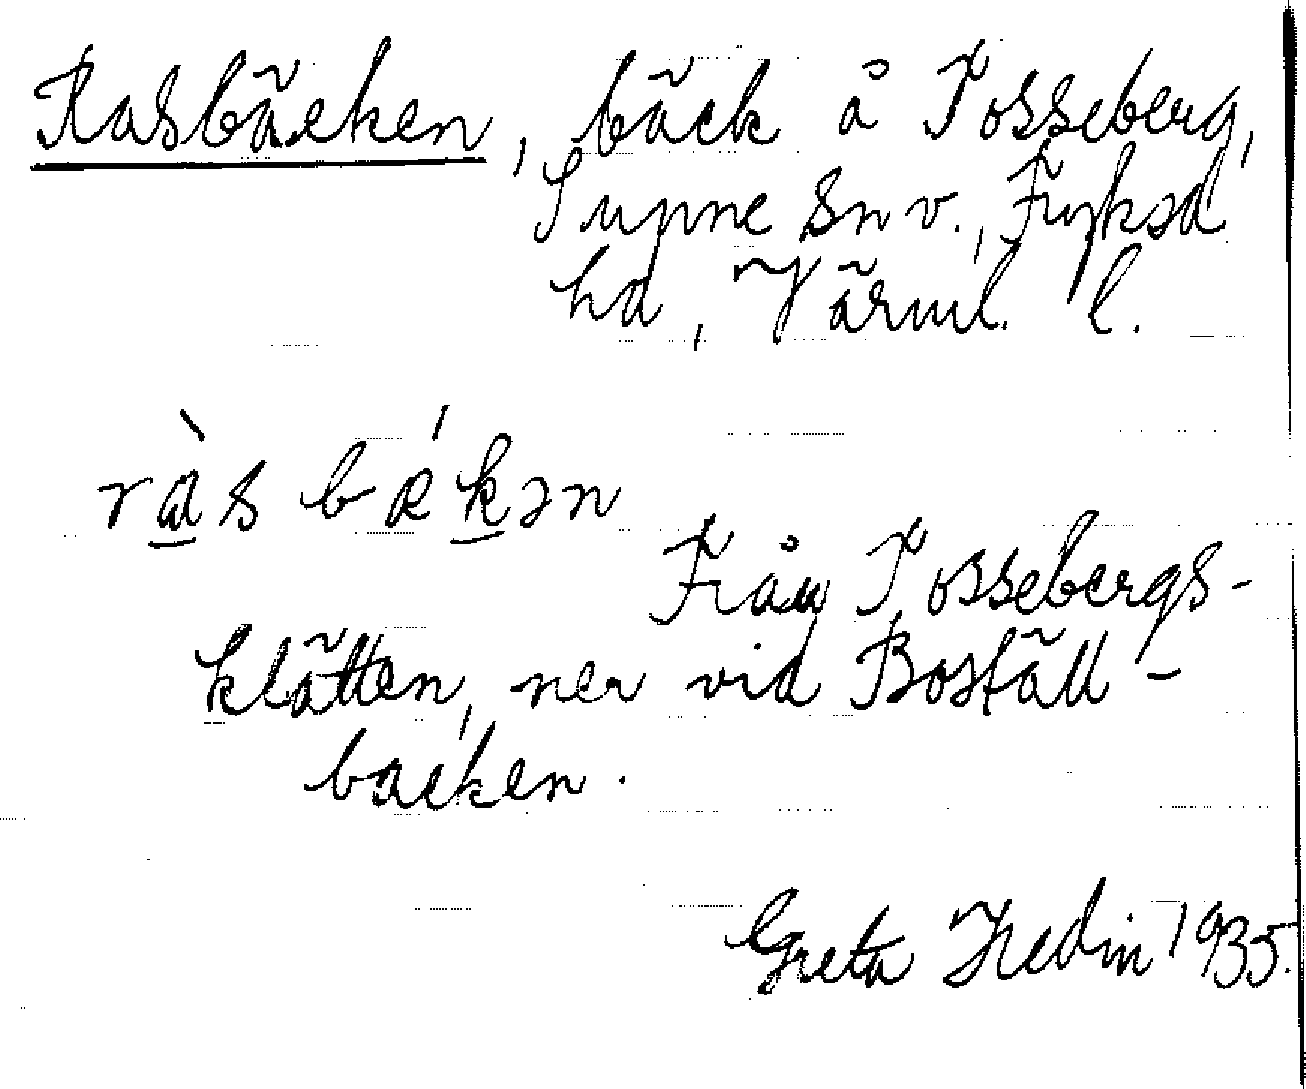 Rasbäcken, bäck å Tosseberg,
Sunne sn v., Fryksd
hd, Värml. l.
ràs bǽkən
Från Tossebergs-
klätten, ner vid Boställ-
backen.
Greta Hedin 1935.